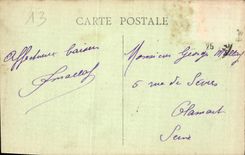 13
CARTE POSTALE
Affectueux baisers
Monsieur Georges
5 rue de Sèvres
Clamart
Seine